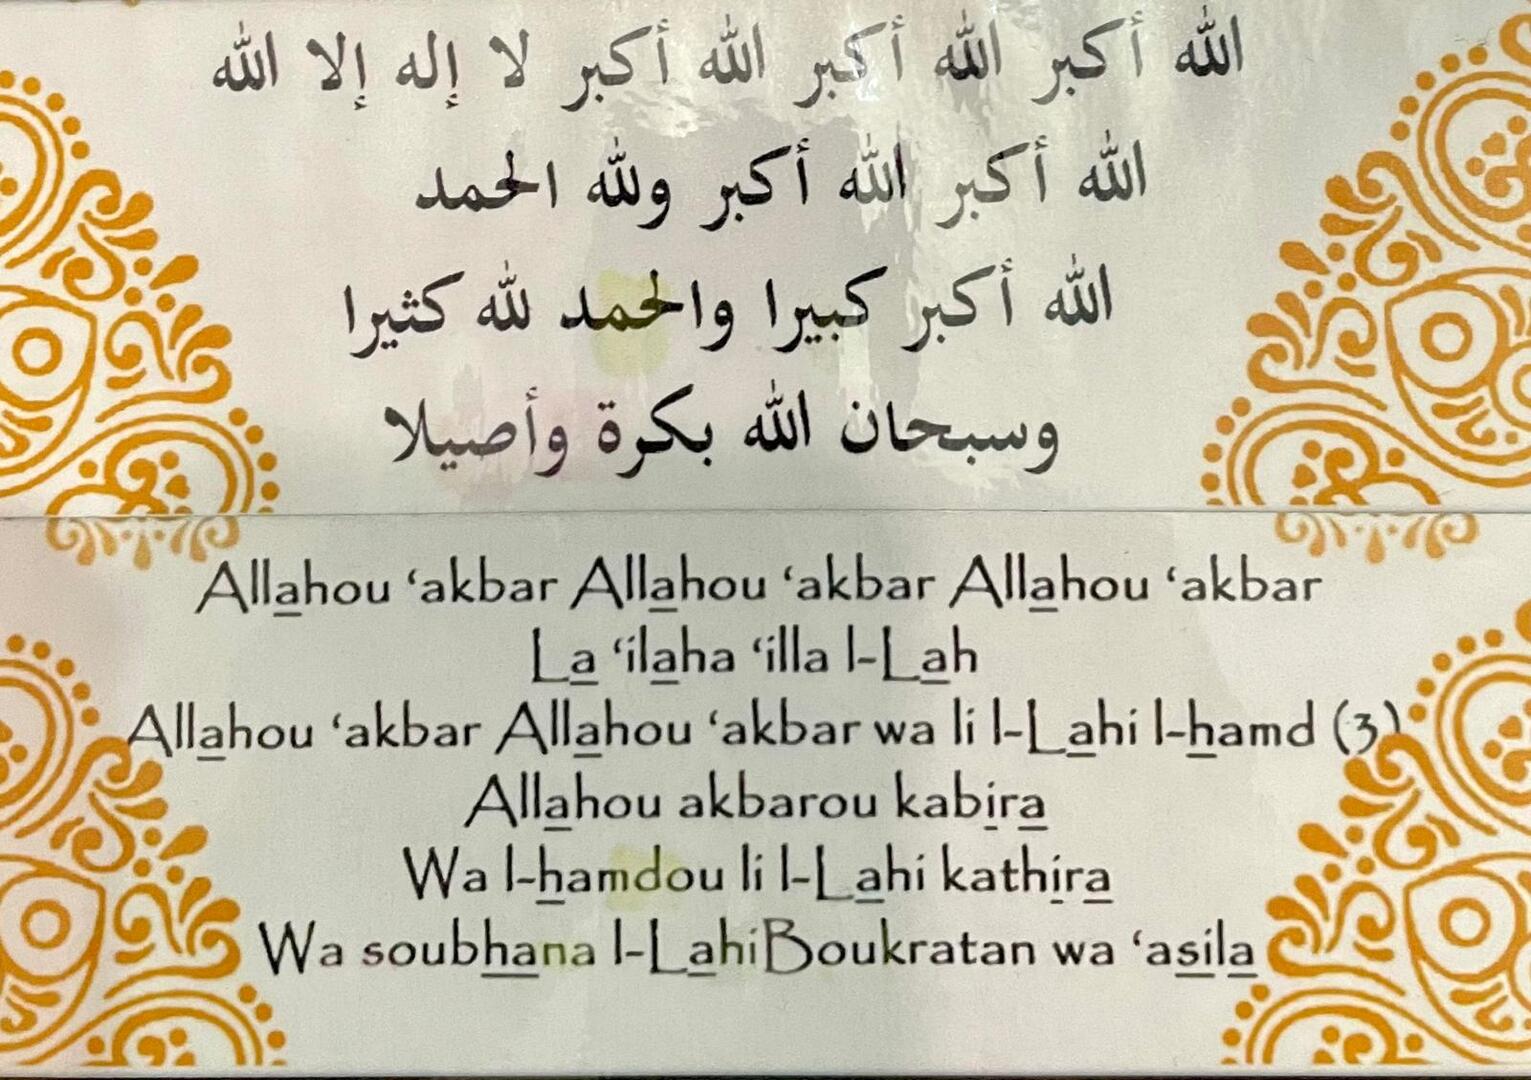 الله أكبر الله أكبر الله أكبر لا إله إلا الله
الله أكبر الله أكبر ولله الحمد
الله أكبر كبيرا والحمد لله كثيرا
وسبحان الله بكرة وأصيلا
Allahou ‘akbar Allahou ‘akbar Allahou ‘akbar
La ‘ilaha ‘illa l-Lah
Allahou ‘akbar Allahou ‘akbar wa li l-Lahi l-hamd (3)
Allahou akbarou kabira
Wa l-hamdou li l-Lahi kathira
Wa soubhana l-LahiBoukratan wa ‘asila